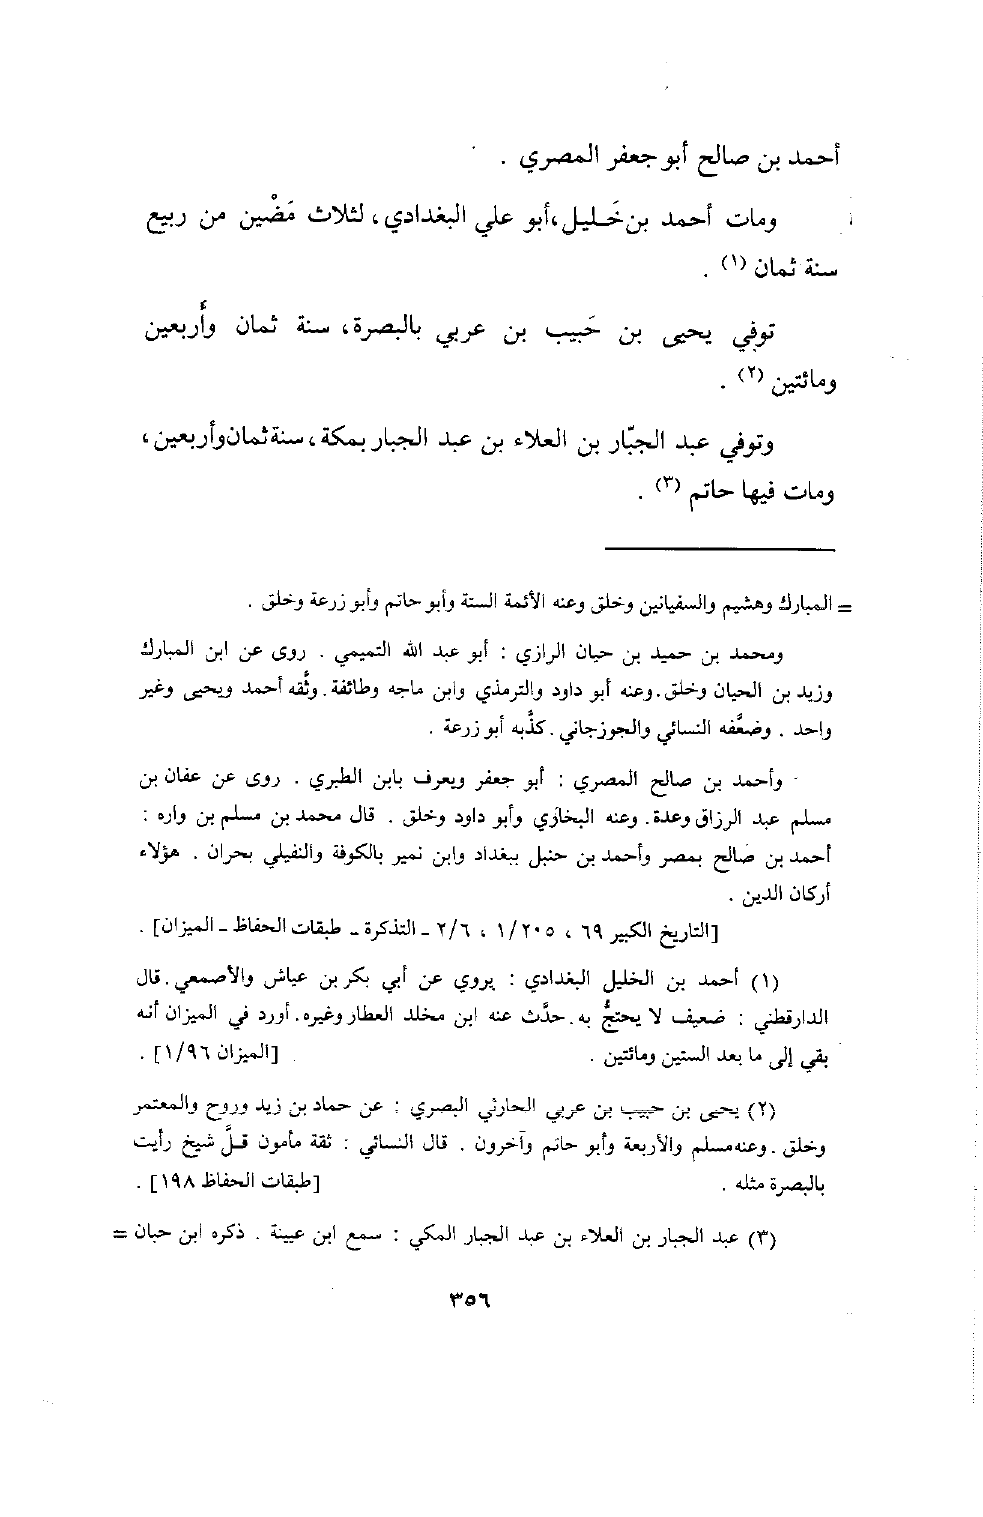 أحمد بن صالح أبو جعفر المصري .
ومات أحمد بن خَليل، أبو علي البغدادي، لثلاث مَضْين من ربيع
سنة ثمان (١) .
توفي يحيى بن حَبيب بن عربي بالبصرة، سنة ثمان وأربعين
ومائتين (٢) .
وتوفي عبد الجبّار بن العلاء بن عبد الجبار بمكة، سنة ثمان وأربعين،
ومات فيها حاتم (٣) .
= المبارك وهشيم والسفيانين وخلق وعنه الأئمة الستة وأبو حاتم وأبو زرعة وخلق .
ومحمد بن حميد بن حيان الرازي : أبو عبد الله التميمي . روى عن ابن المبارك
وزيد بن الحيان وخلق. وعنه أبو داود والترمذي وابن ماجه وطائفة. وثَّقه أحمد ويحيى وغير
واحد . وضعَّفه النسائي والجوزجاني. كذَّبه أبو زرعة .
وأحمد بن صالح المصري : أبو جعفر ويعرف بابن الطبري . روى عن عفان بن
مسلم عبد الرزاق وعدة. وعنه البخاري وأبو داود وخلق . قال محمد بن مسلم بن واره :
أحمد بن صالح بمصر وأحمد بن حنبل ببغداد وابن نمير بالكوفة والنفيلي بحران . هؤلاء
أركان الدين .
[التاريخ الكبير ٦٩ ، ١/٢٠٥ ، ٢/٦ ـ التذكرة ـ طبقات الحفاظ ـ الميزان] .
(١) أحمد بن الخليل البغدادي : يروي عن أبي بكر بن عياش والأصمعي. قال
الدارقطني : ضعيف لا يحتجُّ به. حدَّث عنه ابن مخلد العطار وغيره. أورد في الميزان أنه
بقي إلى ما بعد الستين ومائتين . [الميزان ١/٩٦] .
(٢) يحيى بن حبيب بن عربي الحارثي البصري : عن حماد بن زيد وروح والمعتمر
وخلق . وعنه مسلم والأربعة وأبو حاتم وآخرون . قال النسائي : ثقة مأمون قلَّ شيخ رأيت
بالبصرة مثله . [طبقات الحفاظ ١٩٨] .
(٣) عبد الجبار بن العلاء بن عبد الجبار المكي : سمع ابن عيينة . ذكره ابن حبان =
٣٥٦